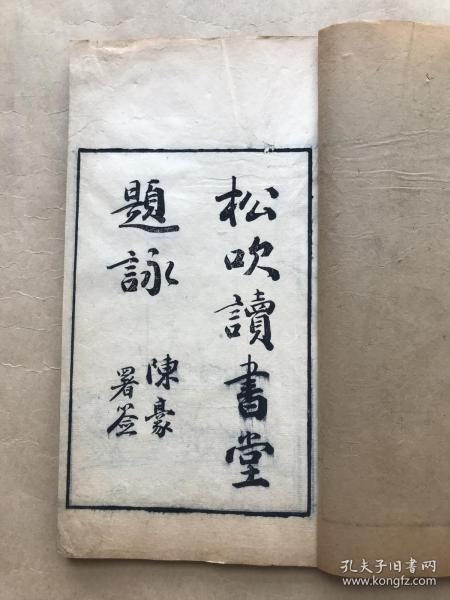 松吹讀書堂
題詠
陳豪
署签
孔夫子旧书网
www.kongfz.com